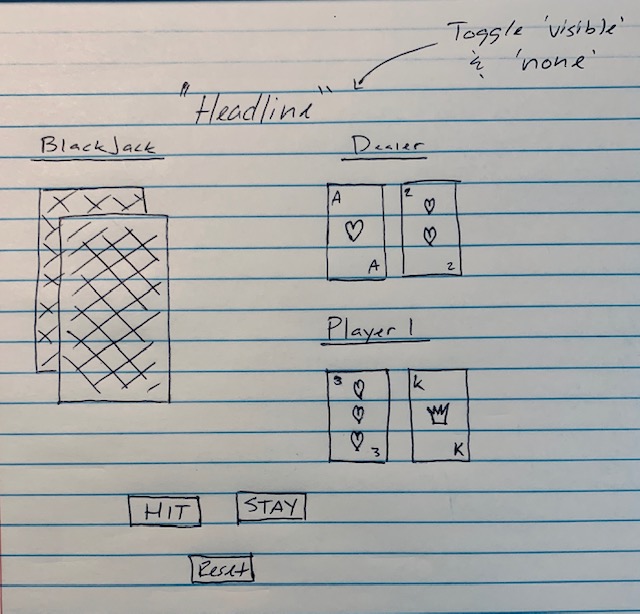 Toggle 'visible'
& 'none'
"Headline"
BlackJack
Dealer
A
A
2
2
Player 1
3
3
K
K
HIT
STAY
Reset